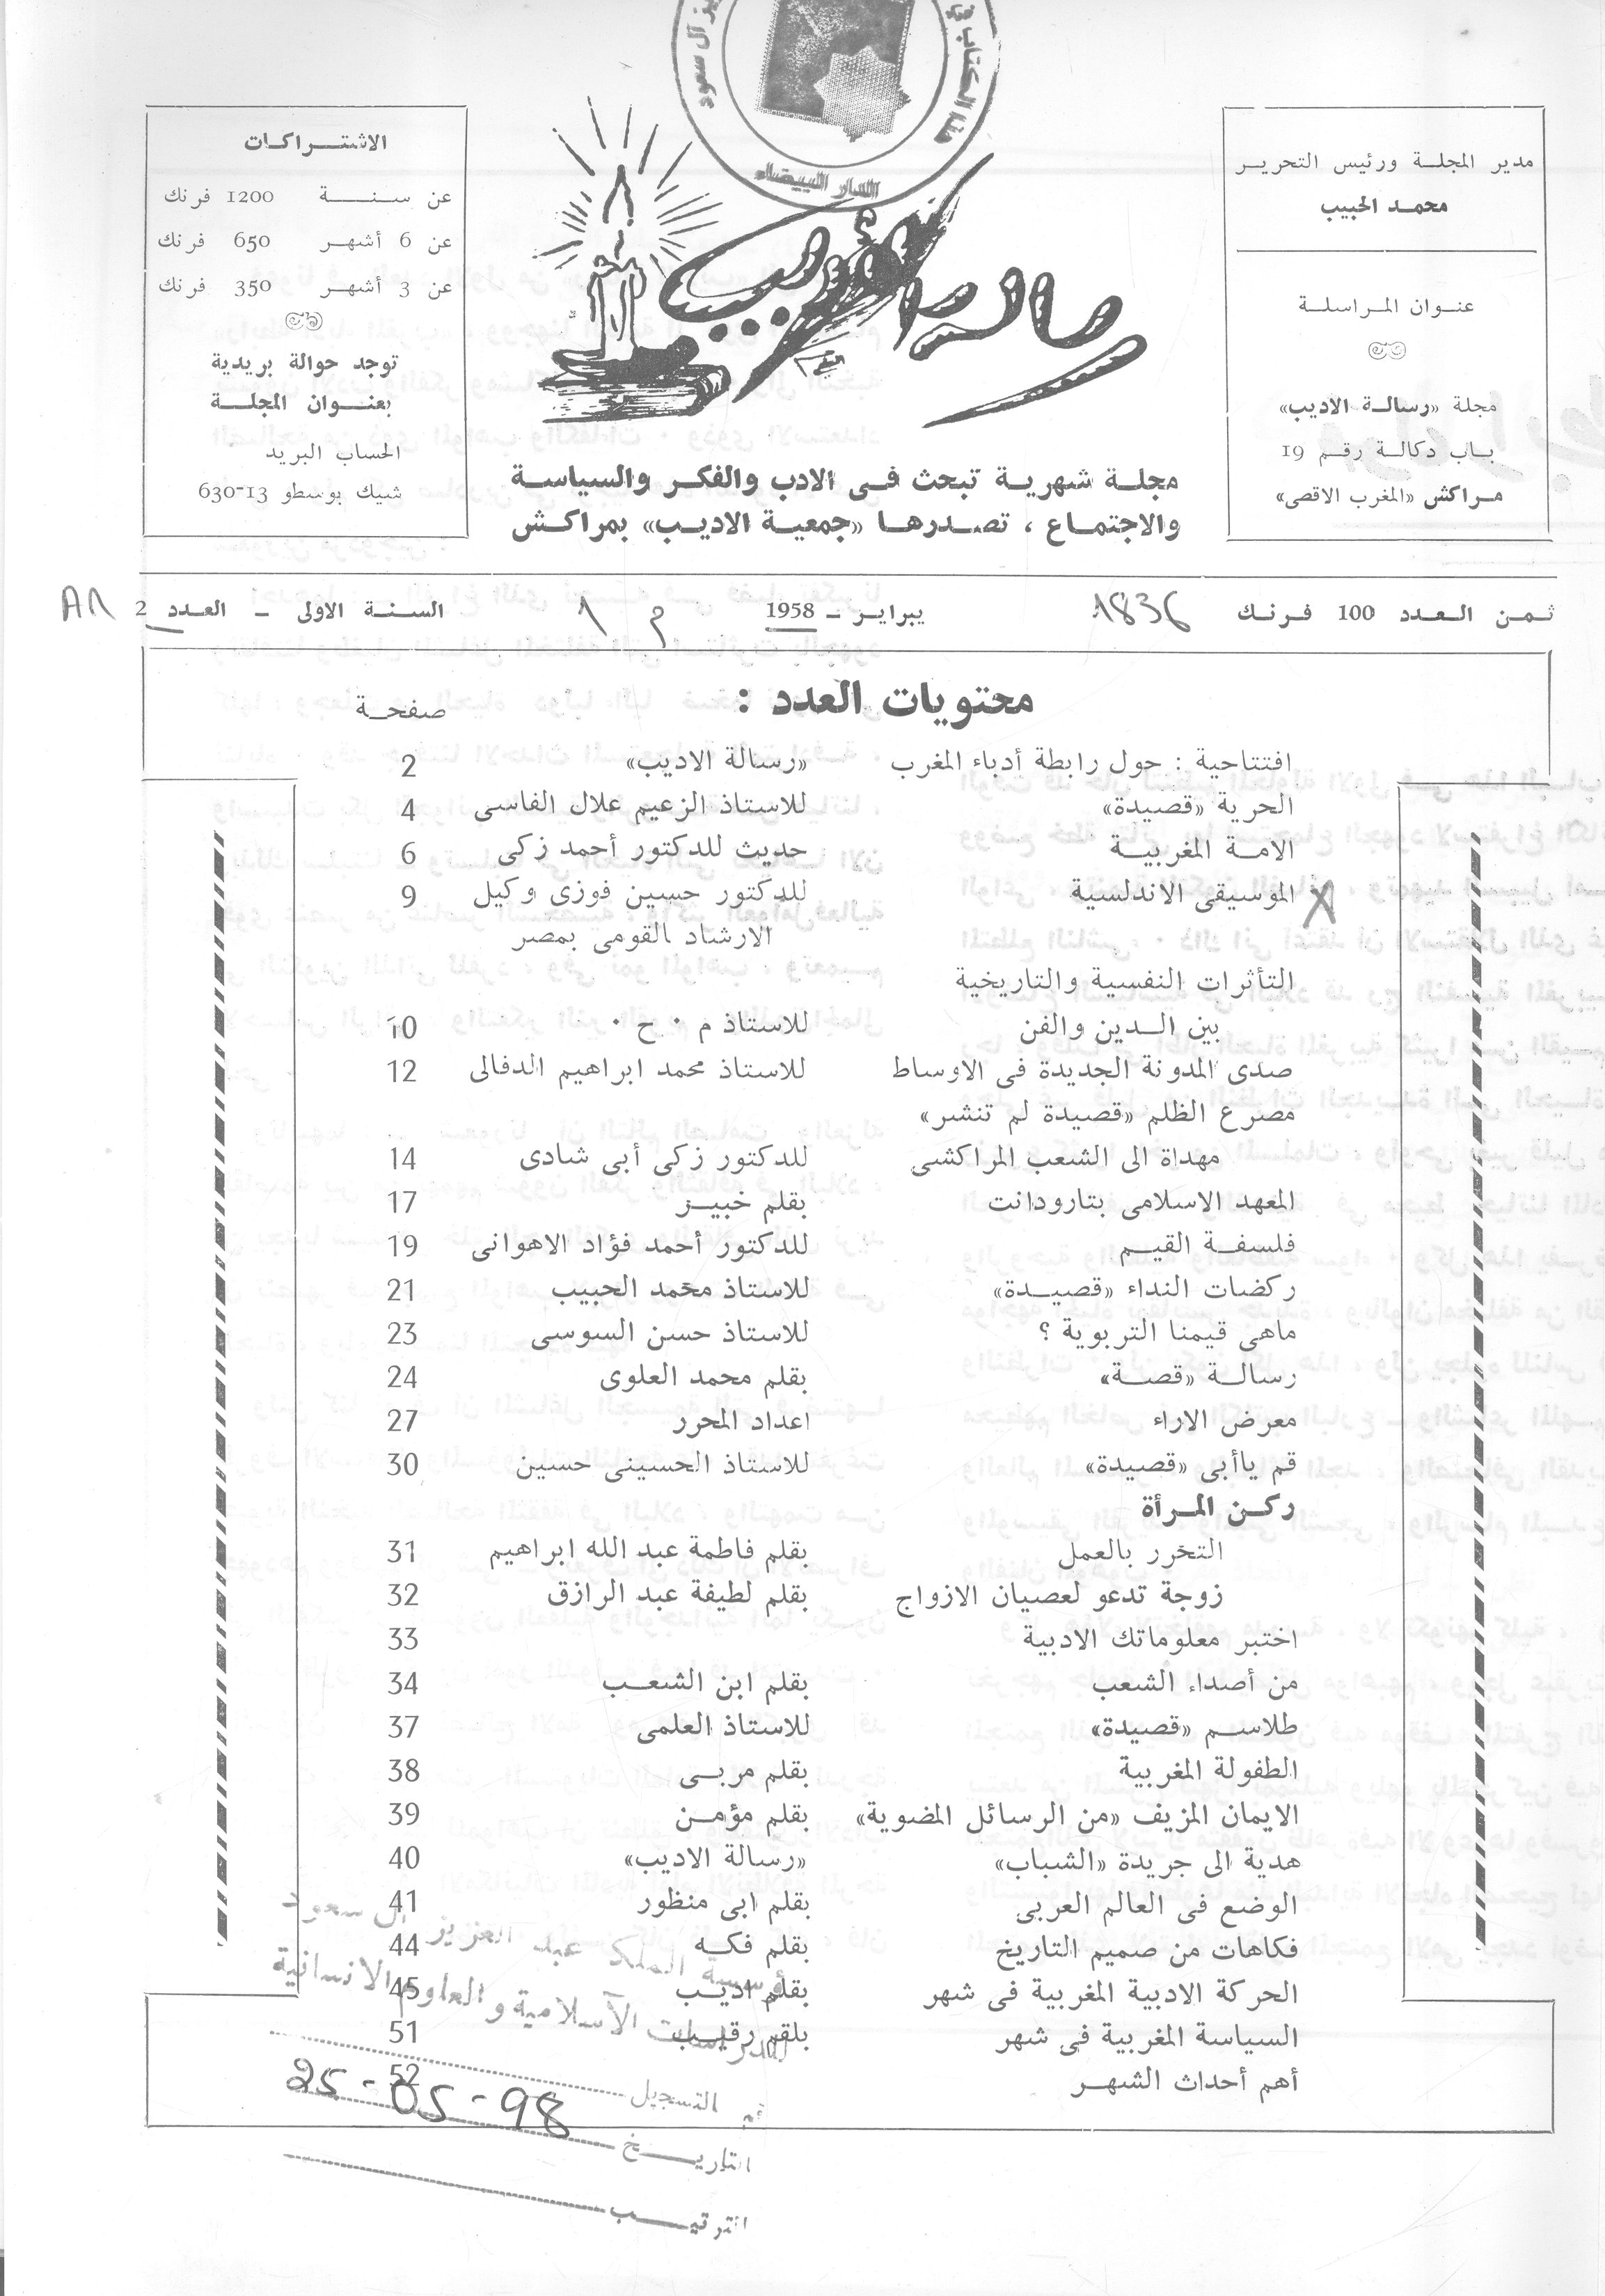 هذا الكتاب في
يز آل سعود
الدار البيضاء
مدير المجلة ورئيس التحرير
محمد الحبيب
عنوان المراسلة
مجلة «رسالة الاديب»
باب دكالة رقم 19
مراكش «المغرب الاقصى»
رسالة الأديب
مجلة شهرية تبحث فى الادب والفكر والسياسة
والاجتماع ، تصدرها «جمعية الاديب» بمراكش
الاشتراكات
عن سنة 1200 فرنك
عن 6 أشهر 650 فرنك
عن 3 أشهر 350 فرنك
توجد حوالة بريدية
بعنوان المجلة
الحساب البريد
شيك بوسطو 13-630
ثمن العدد 100 فرنك 1836 يبراير - 1958 م 1 السنة الاولى - العدد 2
محتويات العدد : صفحة
افتتاحية : حول رابطة أدباء المغرب «رسالة الاديب» 2
الحرية «قصيدة» للاستاذ الزعيم علال الفاسى 4
الامة المغربية حديث للدكتور أحمد زكى 6
الموسيقى الاندلسية للدكتور حسين فوزى وكيل 9
الارشاد القومى بمصر
التأثرات النفسية والتاريخية
بين الدين والفن للاستاذ م . ح . 10
صدى المدونة الجديدة فى الاوساط للاستاذ محمد ابراهيم الدفالى 12
مصرع الظلم «قصيدة لم تنشر»
مهداة الى الشعب المراكشى للدكتور زكى أبى شادى 14
المعهد الاسلامى بتارودانت بقلم خبير 17
فلسفة القيم للدكتور أحمد فؤاد الاهوانى 19
ركضات النداء «قصيدة» للاستاذ محمد الحبيب 21
ماهى قيمنا التربوية ؟ للاستاذ حسن السوسى 23
رسالة «قصة» بقلم محمد العلوى 24
معرض الاراء اعداد المحرر 27
قم ياأبى «قصيدة» للاستاذ الحسينى حسين 30
ركن المرأة
التخرر بالعمل بقلم فاطمة عبد الله ابراهيم 31
زوجة تدعو لعصيان الازواج بقلم لطيفة عبد الرازق 32
اختبر معلوماتك الادبية 33
من أصداء الشعب بقلم ابن الشعب 34
طلاسم «قصيدة» للاستاذ العلمى 37
الطفولة المغربية بقلم مربى 38
الايمان المزيف «من الرسائل المضوية» بقلم مؤمن 39
هدية الى جريدة «الشباب» «رسالة الاديب» 40
الوضع فى العالم العربى بقلم ابى منظور 41
فكاهات من صميم التاريخ بقلم فكه 44
الحركة الادبية المغربية فى شهر بقلم اديب 45
السياسة المغربية فى شهر بلقم رقيب 51
أهم أحداث الشهر 52
مؤسسة الملك عبد العزيز آل سعود
للدراسات الآسلامية والعلوم الانسانية
التسجيل
التاريخ 25-05-98
الترتيب